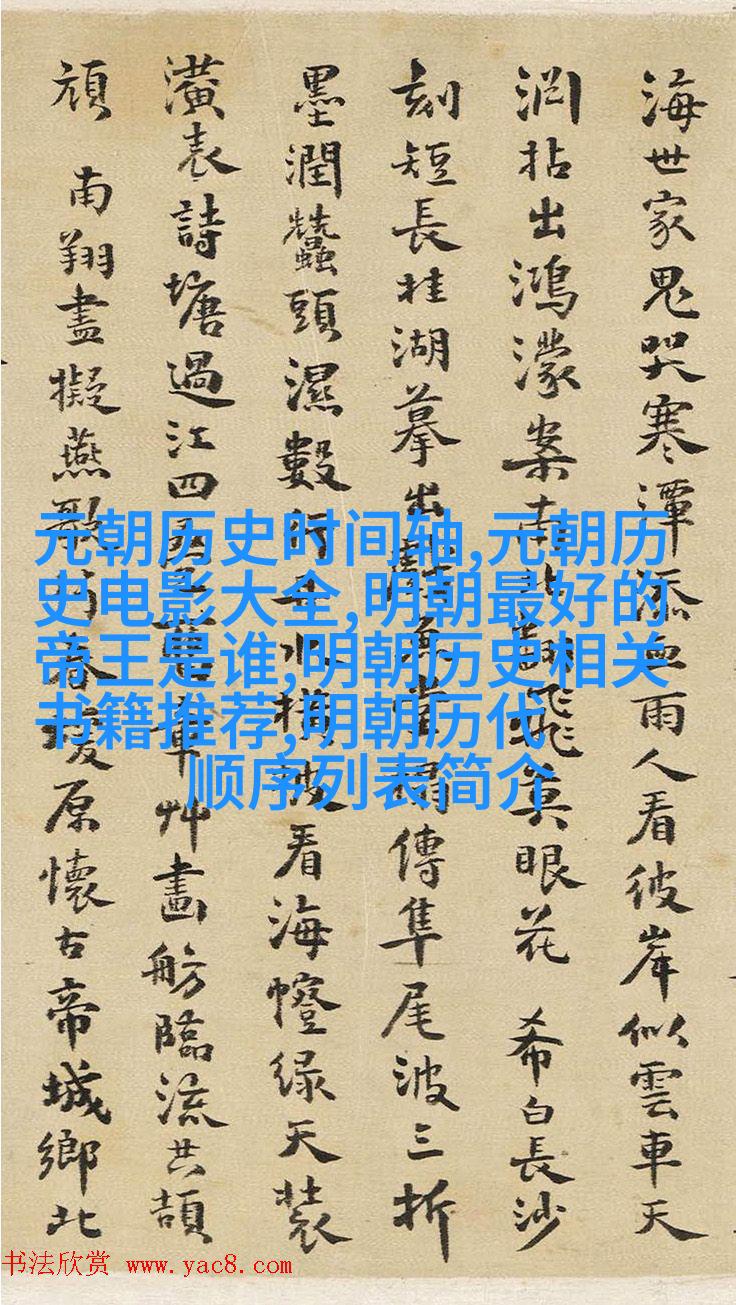 海世家鬼哭寒潭添血雨人看彼岸似雲車天
拈出鴻濛案南飛莫眼花 希白長沙
刻短長桂湖摹出魚堂傳隼尾波三折
墨潤蠶頭濕數行水横披看海幢緑天裝
潢表詩塘過江四章艸畫舫臨流共頡
頏 南翔盡擬燕歌春原懷古帝城鄉北
元朝历史时间轴,元朝历
史电影大全,明朝最好的
帝王是谁,明朝历史相关
书籍推荐,明朝历代
顺序列表简介
书法欣赏 www.yac8.com